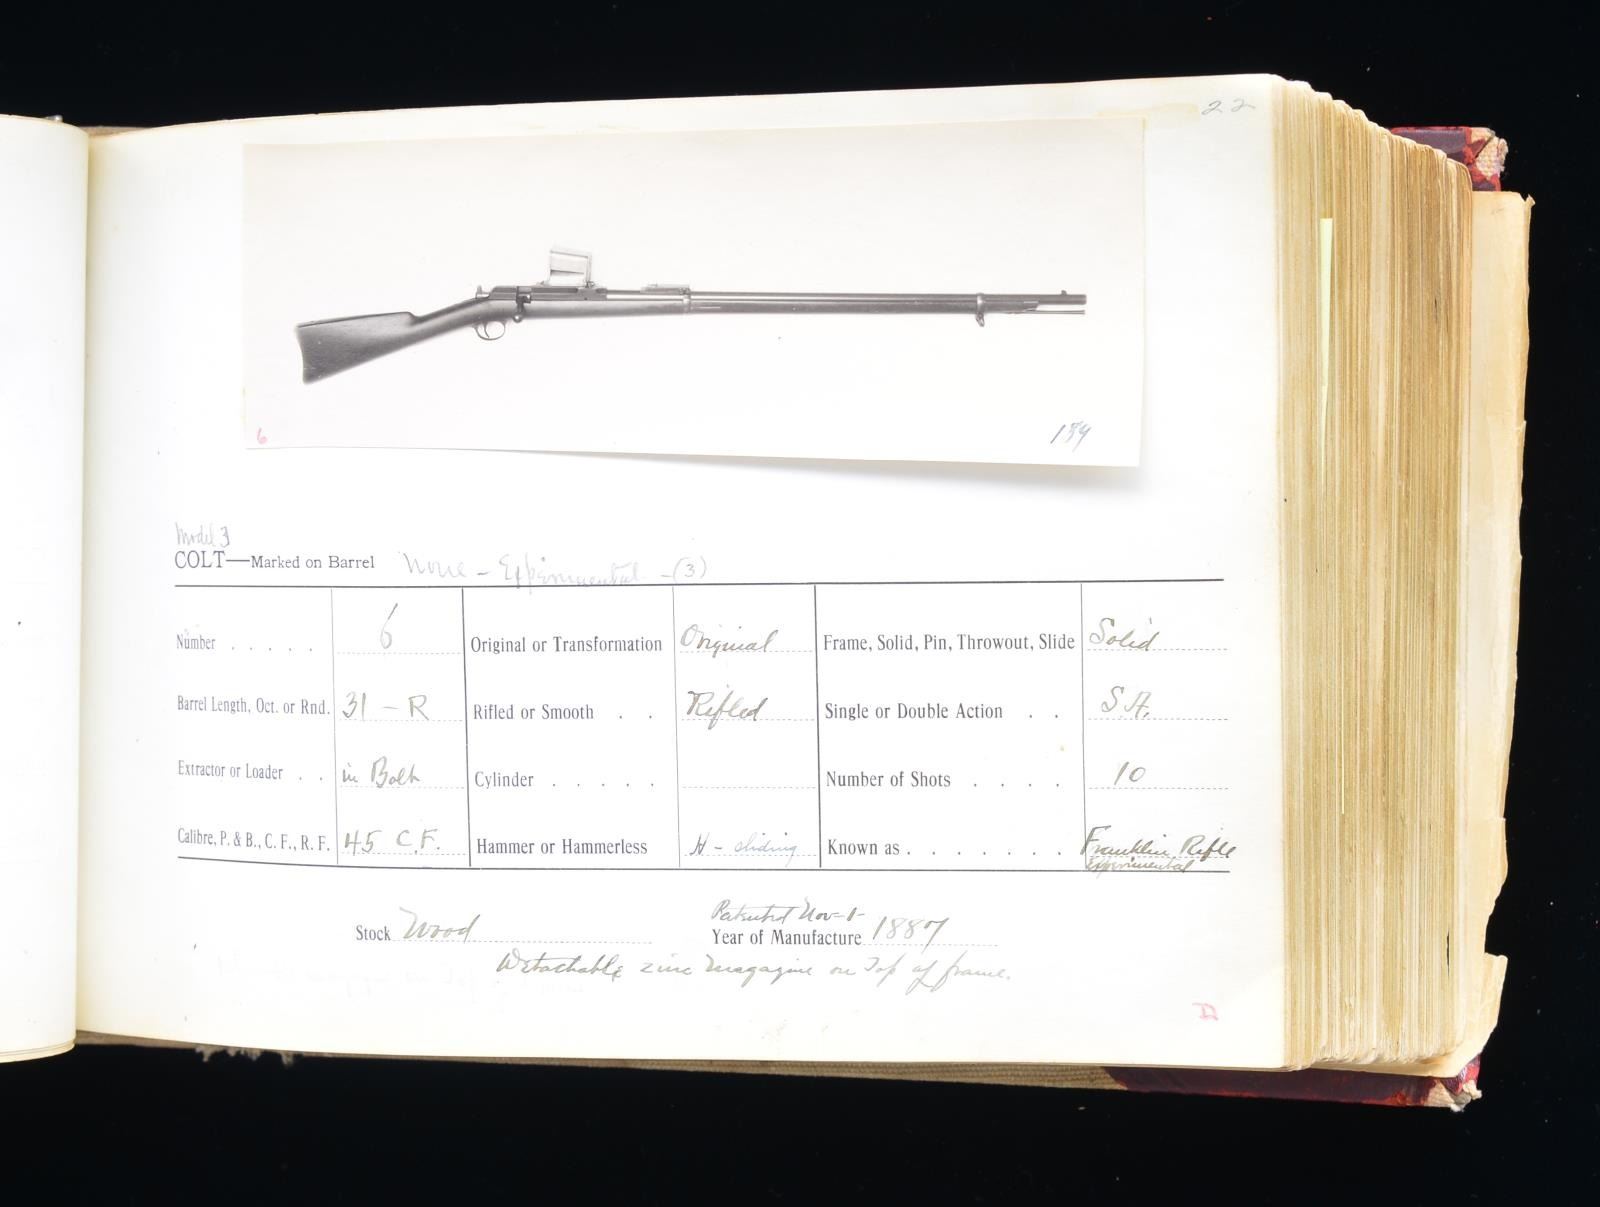 22
6
Model 3
COLT—Marked on Barrel None - Experimental - (3)
Number . . . . . 6 Original or Transformation Original Frame, Solid, Pin, Throwout, Slide Solid
Barrel Length, Oct. or Rnd. 31 - R Rifled or Smooth . . Rifled Single or Double Action . . S.A.
Extractor or Loader . . in Bolt Cylinder . . . . . Number of Shots . . . . 10
Calibre, P. & B., C. F., R. F. 45 C.F. Hammer or Hammerless H - sliding Known as . . . . . . . Franklin Rifle
experimental
Patented Nov-1-
Stock Wood Year of Manufacture 1887
Detachable zinc magazine on Top of frame.
D